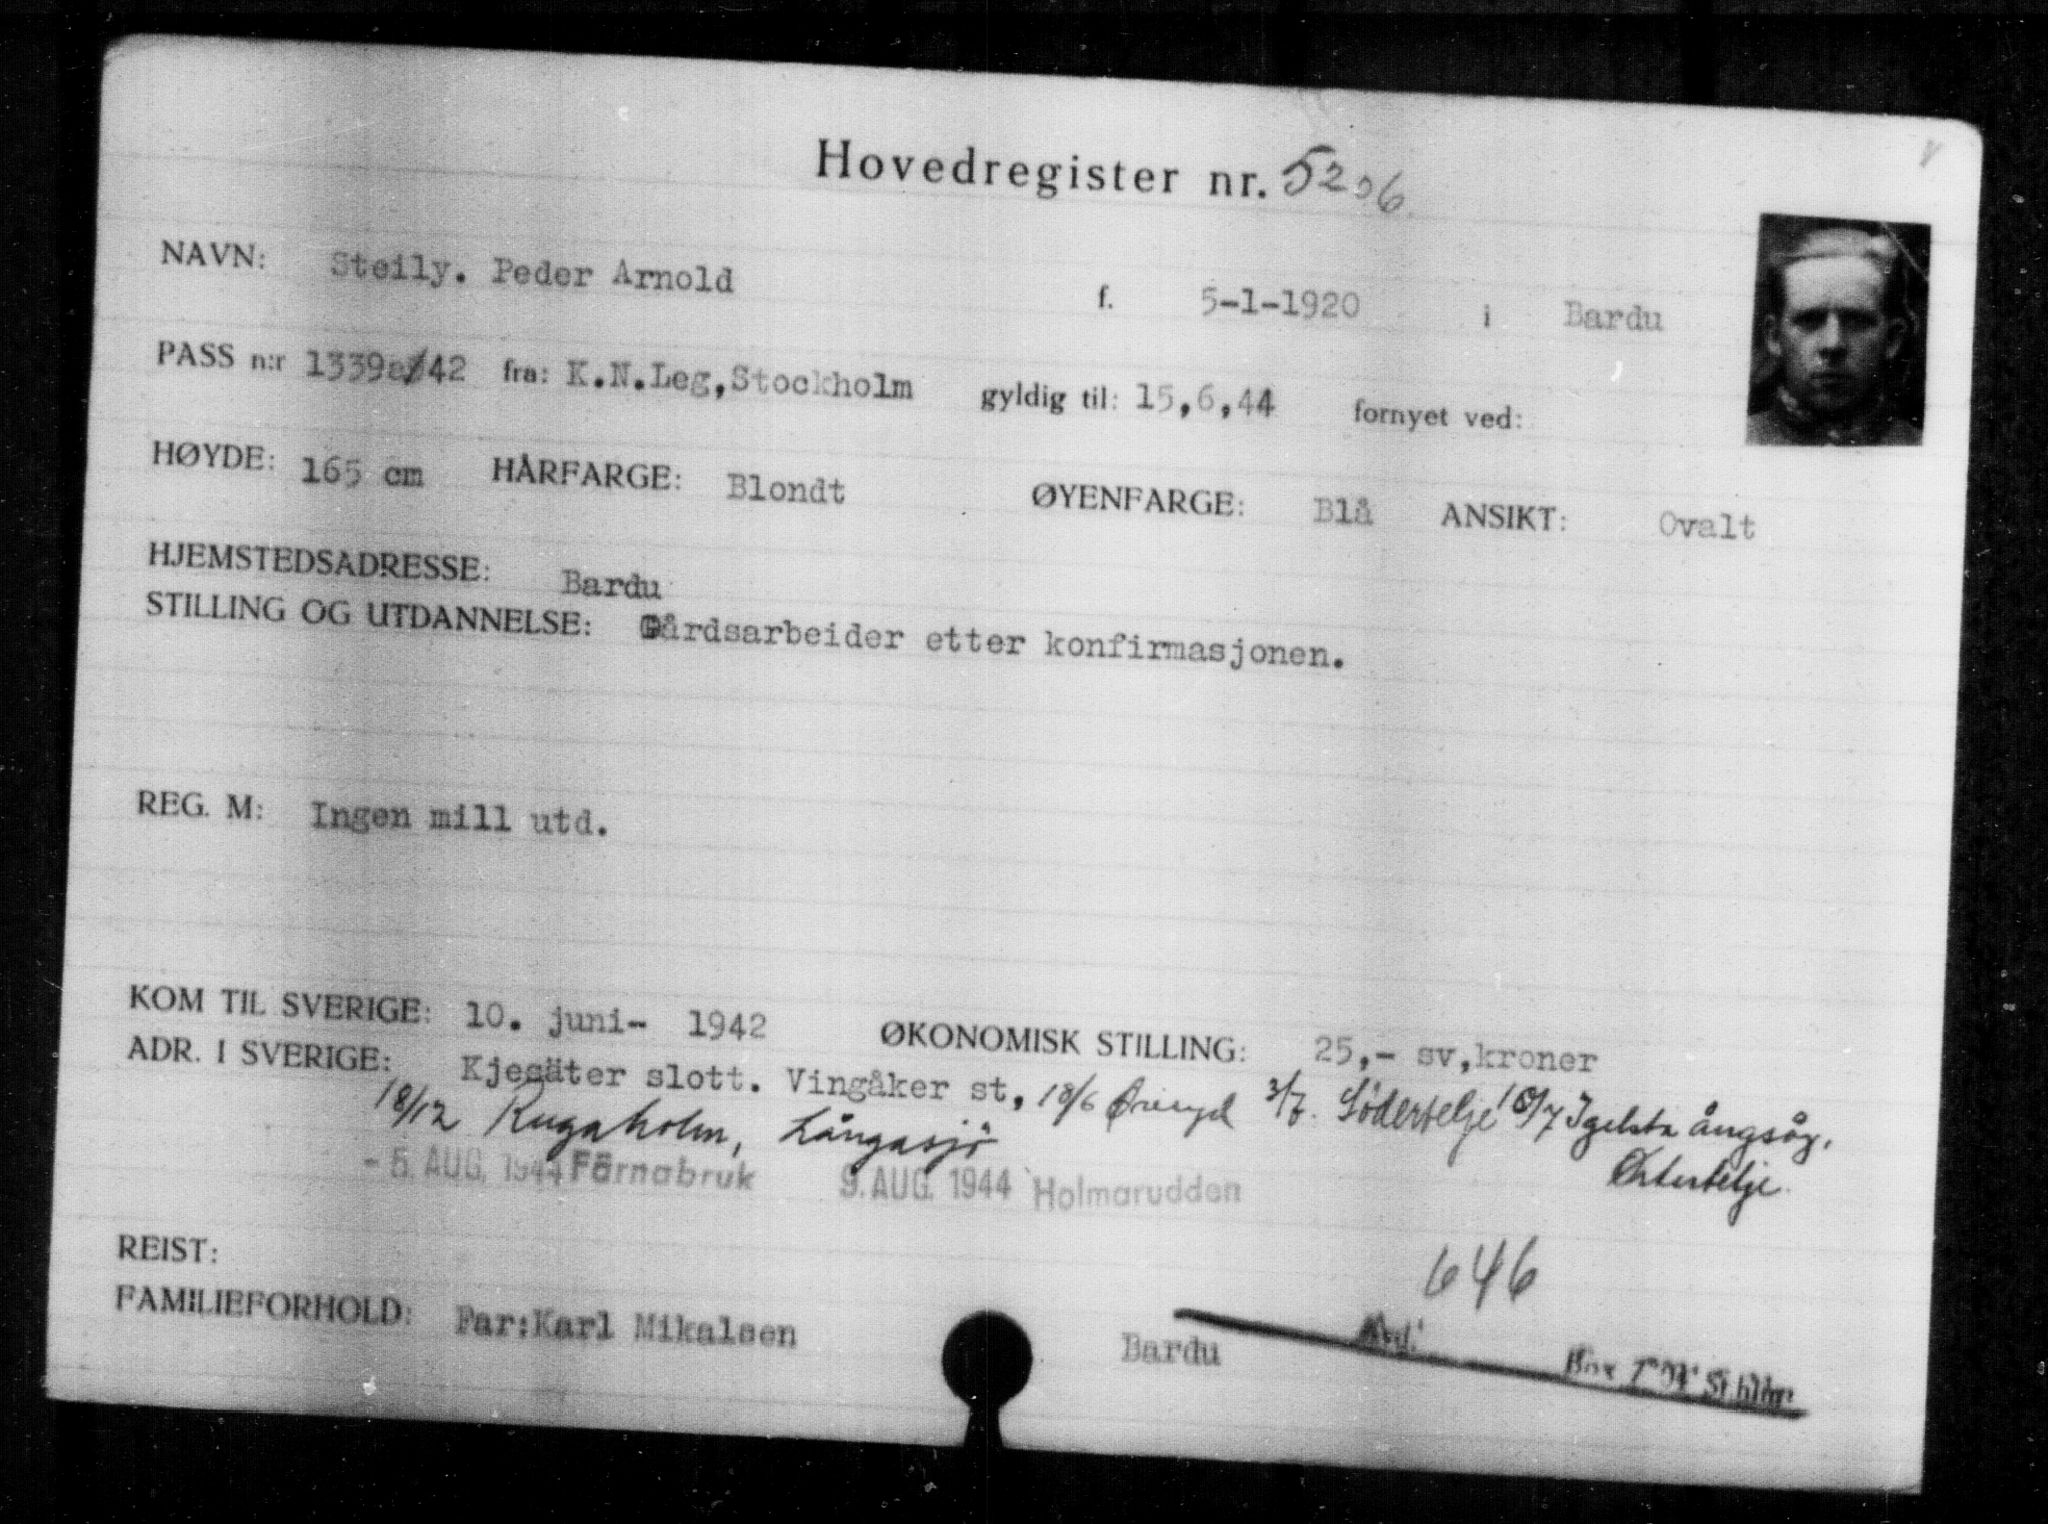 Hovedregister nr. 5206
NAVN: Steily. Peder Arnold f. 5-1-1920 i Bardu
PASS n:r 1339a/42 fra: K.N.Leg,Stockholm gyldig til: 15,6,44 fornyet ved:
HØYDE: 165 cm HÅRFARGE: Blondt ØYENFARGE: Blå ANSIKT: Ovalt
HJEMSTEDSADRESSE: Bardu
STILLING OG UTDANNELSE: Gårdsarbeider etter konfirmasjonen.
REG. M: Ingen mill utd.
KOM TIL SVERIGE: 10. juni- 1942 ØKONOMISK STILLING: 25,- sv,kroner
ADR. I SVERIGE: Kjesäter slott. Vingåker st, 18/6 3/7. Södertelje Igelsta ångsåg,
18/12 Rugaholm, Långasjö Østertelje.
- 5. AUG. 1944 Färnabruk 9. AUG. 1944 Holmarudden
REIST:
646
FAMILIEFORHOLD: Far:Karl Mikalsen Bardu